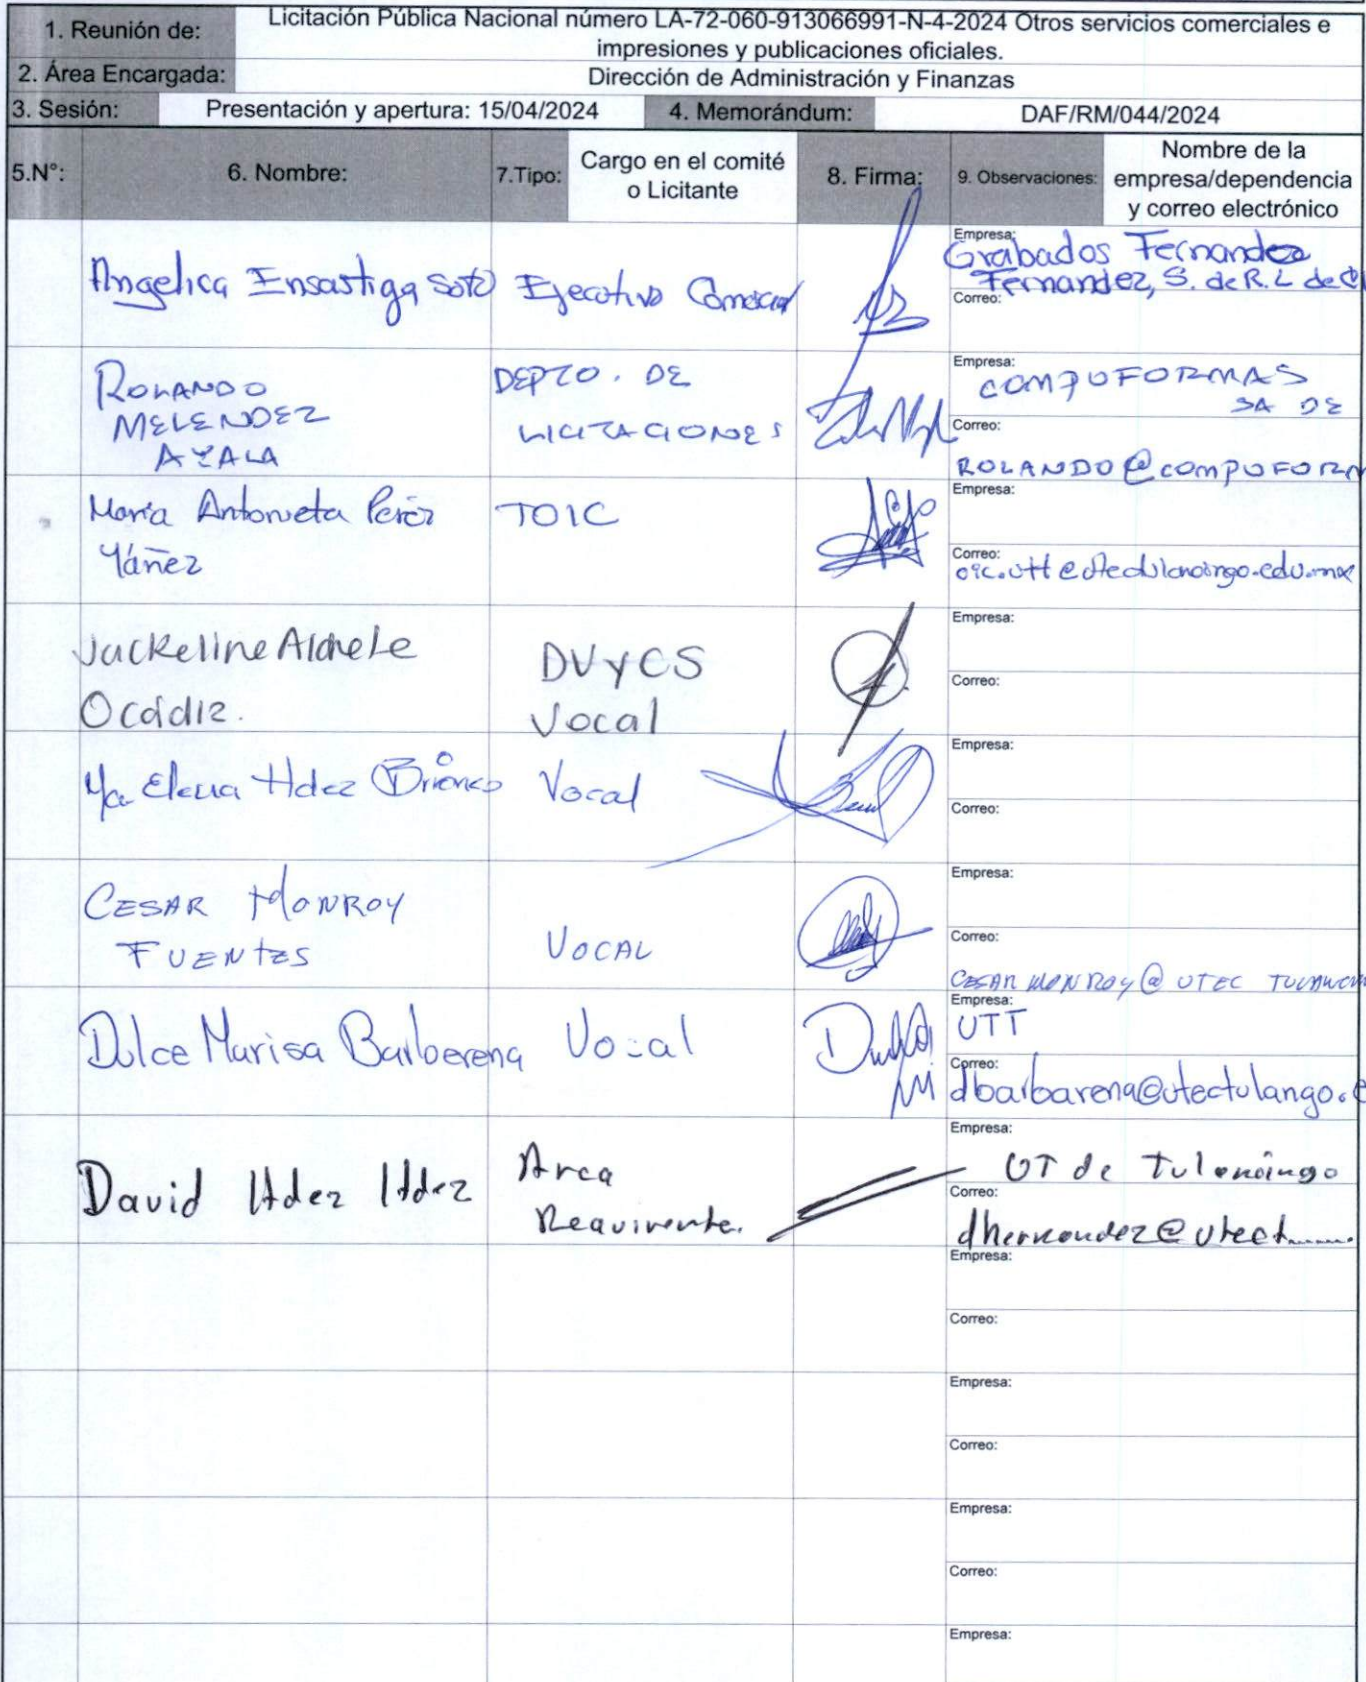 1. Reunión de: Licitación Pública Nacional número LA-72-060-913066991-N-4-2024 Otros servicios comerciales e
impresiones y publicaciones oficiales.
2. Área Encargada: Dirección de Administración y Finanzas
3. Sesión: Presentación y apertura: 15/04/2024 4. Memorándum: DAF/RM/044/2024
5.N°: 6. Nombre: 7.Tipo: Cargo en el comité
o Licitante 8. Firma: 9. Observaciones: Nombre de la
empresa/dependencia
y correo electrónico
Angelica Ensastiga Soto Ejecutivo Comercial
Empresa: Grabados Fernandez
Fernandez, S. de R.L de
Correo:
ROLANDO
MELENDEZ
AYALA
DEPTO. DE
LICITACIONES
Empresa: COMPUFORMAS
SA DE
Correo:
ROLANDO@COMPUFORM
Maria Antonieta Perez
Yáñez
TOIC
Empresa:
Correo:
Jackeline Alderete
Ocádiz.
DVyCS
Vocal
Empresa:
Correo:
Ma Elena Hdez Briones Vocal
Empresa:
Correo:
CESAR MONROY
FUENTES
VOCAL
Empresa:
Correo:
CESAR MONROY@ UTEC
Dulce Marisa Barberena Vocal
Empresa:
UTT
Correo:
dbarbarena@utectulango.e
David Hdez Hdez
Area
Requirente.
Empresa:
UT de Tulancingo
Correo:
dhernandez@utect......
Empresa:
Correo:
Empresa:
Correo:
Empresa:
Correo:
Empresa: